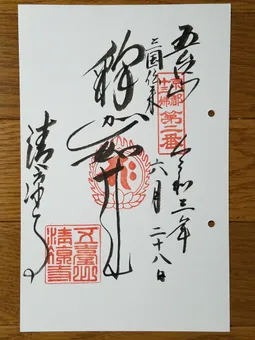 五台山
令和三年
京都
十三佛
第二番
六月二十八日
三国伝来
釋迦如来
清凉寺
五臺山
清凉寺